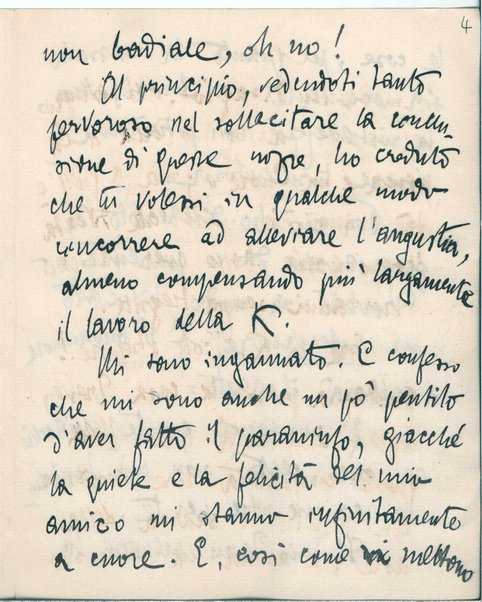 4
non badiale, oh no!
Al principio, vedendoti tanto
fervoroso nel sollecitare la conclu-
sione di queste nozze, ho creduto
che tu volessi in qualche modo
concorrere ad alleviare l'angustia,
almeno compensando più largamente
il lavoro della K.
Mi sono ingannato. E confesso
che mi sono anche un po' pentito
d'aver fatto il paraninfo, giacché
la quiete e la felicità del mio
amico mi stanno infinitamente
a cuore. E, così come mettono